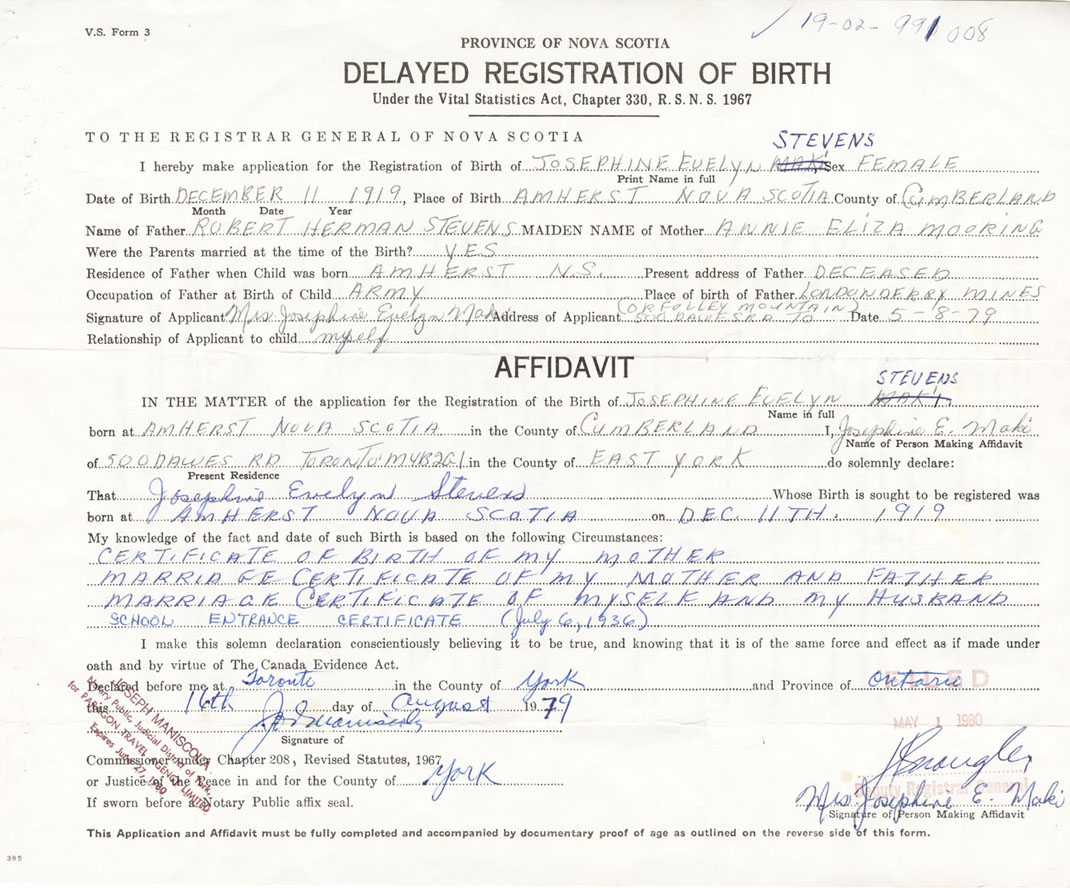 V.S. Form 3
19-02-991008
PROVINCE OF NOVA SCOTIA
DELAYED REGISTRATION OF BIRTH
Under the Vital Statistics Act, Chapter 330, R. S. N. S. 1967
TO THE REGISTRAR GENERAL OF NOVA SCOTIA
STEVENS
I hereby make application for the Registration of Birth of JOSEPHINE EVELYN MAKI Sex FEMALE
Print Name in full
Date of Birth DECEMBER 11 1919, Place of Birth AMHERST NOVA SCOTIA County of CUMBERLAND
Month Date Year
Name of Father ROBERT HERMAN STEVENS MAIDEN NAME of Mother ANNIE ELIZA MOORING
Were the Parents married at the time of the Birth? YES
Residence of Father when Child was born AMHERST N.S. Present address of Father DECEASED
Occupation of Father at Birth of Child ARMY Place of birth of Father LONDONDERRY MINES
Signature of Applicant Mrs Josephine Evelyn Maki Address of Applicant 500 DAWES RD TO Date 5-8-79
Relationship of Applicant to child myself
AFFIDAVIT
STEVENS
IN THE MATTER of the application for the Registration of the Birth of JOSEPHINE EVELYN MAKI
Name in full
born at AMHERST NOVA SCOTIA in the County of CUMBERLAND I, Josephine E. Maki
Name of Person Making Affidavit
of 500 DAWES RD TORONTO M4B2G1 in the County of EAST YORK do solemnly declare:
Present Residence
That Josephine Evelyn Stevens Whose Birth is sought to be registered was
born at AMHERST NOVA SCOTIA on DEC. 11TH. 1919
My knowledge of the fact and date of such Birth is based on the following Circumstances:
CERTIFICATE OF BIRTH OF MY MOTHER
MARRIAGE CERTIFICATE OF MY MOTHER AND FATHER
MARRIAGE CERTIFICATE OF MYSELF AND MY HUSBAND
SCHOOL ENTRANCE CERTIFICATE (July 6, 1936)
I make this solemn declaration conscientiously believing it to be true, and knowing that it is of the same force and effect as if made under
oath and by virtue of The Canada Evidence Act.
Declared before me at Toronto in the County of York and Province of Ontario
FILED
this 16th day of August 1979
MAY 1 1980
Signature of
Commissioner under Chapter 208, Revised Statutes, 1967
or Justice of the Peace in and for the County of York
Deputy Registrar General
Mrs Josephine E. Maki
If sworn before a Notary Public affix seal.
Signature of Person Making Affidavit
JOSEPH MANISCOLA
Notary Public, Judicial District of York,
for PARAGON TRAVEL AGENCY LIMITED.
Expires June 27, 1980
This Application and Affidavit must be fully completed and accompanied by documentary proof of age as outlined on the reverse side of this form.
385